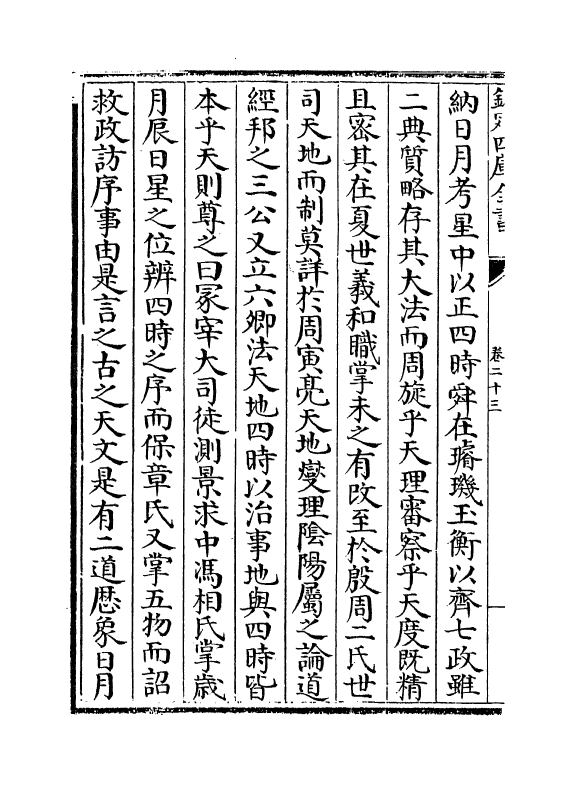 欽定四庫全書
卷二十三
納日月考星中以正四時舜在璿璣玉衡以齊七政雖
二典質略存其大法而周旋乎天理審察乎天度既精
且密其在夏世羲和職掌未之有改至於殷周二氏世
司天地而制莫詳於周寅亮天地燮理陰陽屬之論道
經邦之三公又立六卿法天地四時以治事地與四時皆
本乎天則尊之曰冢宰大司徒測景求中馮相氏掌歲
月辰日星之位辨四時之序而保章氏又掌五物而詔
救政訪序事由是言之古之天文是有二道厯象日月